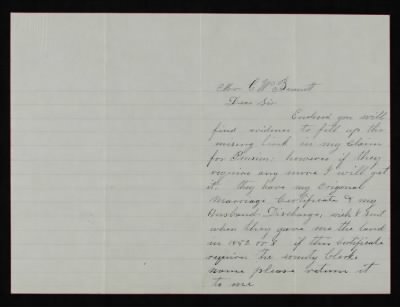 Mr. C W Bennett
Dear Sir
Enclosed you will
find evidence to fill up the
missing link in my Claim
for Pension: however if they
require any more I will get
it. they have my Original
Marriage Certificate & my
Husband Discharge, wich I Sent
when they gave me the land
in 1852 or 3 if this certificate
requires the county Clerks
name please return it
to me